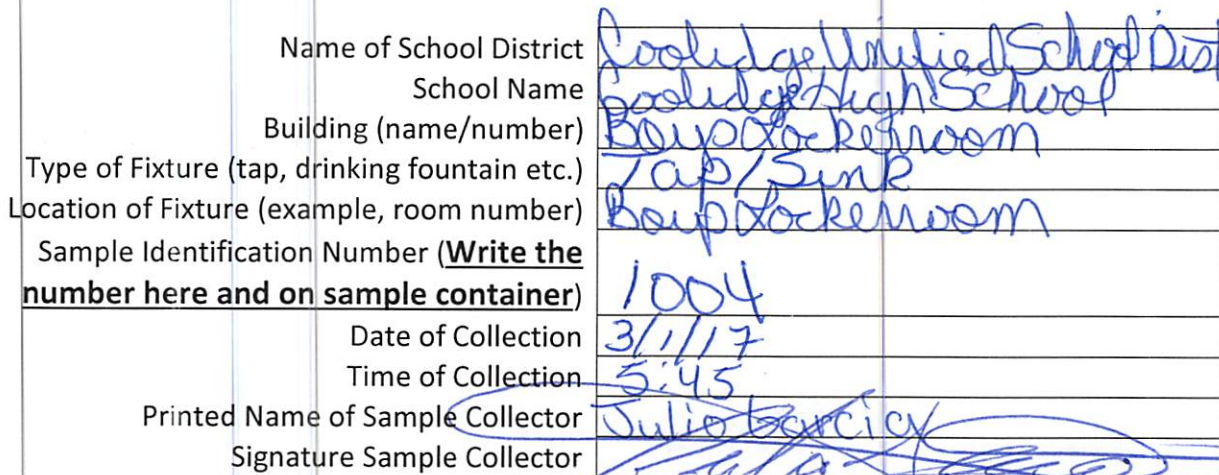 Name of School District Coolidge Unified School Dist
School Name Coolidge High School
Building (name/number) Boys Lockerroom
Type of Fixture (tap, drinking fountain etc.) Tap/Sink
Location of Fixture (example, room number) Boys Lockerroom
Sample Identification Number (Write the
number here and on sample container) 1004
Date of Collection 3/1/17
Time of Collection 5:45
Printed Name of Sample Collector Julio Garcia
Signature Sample Collector